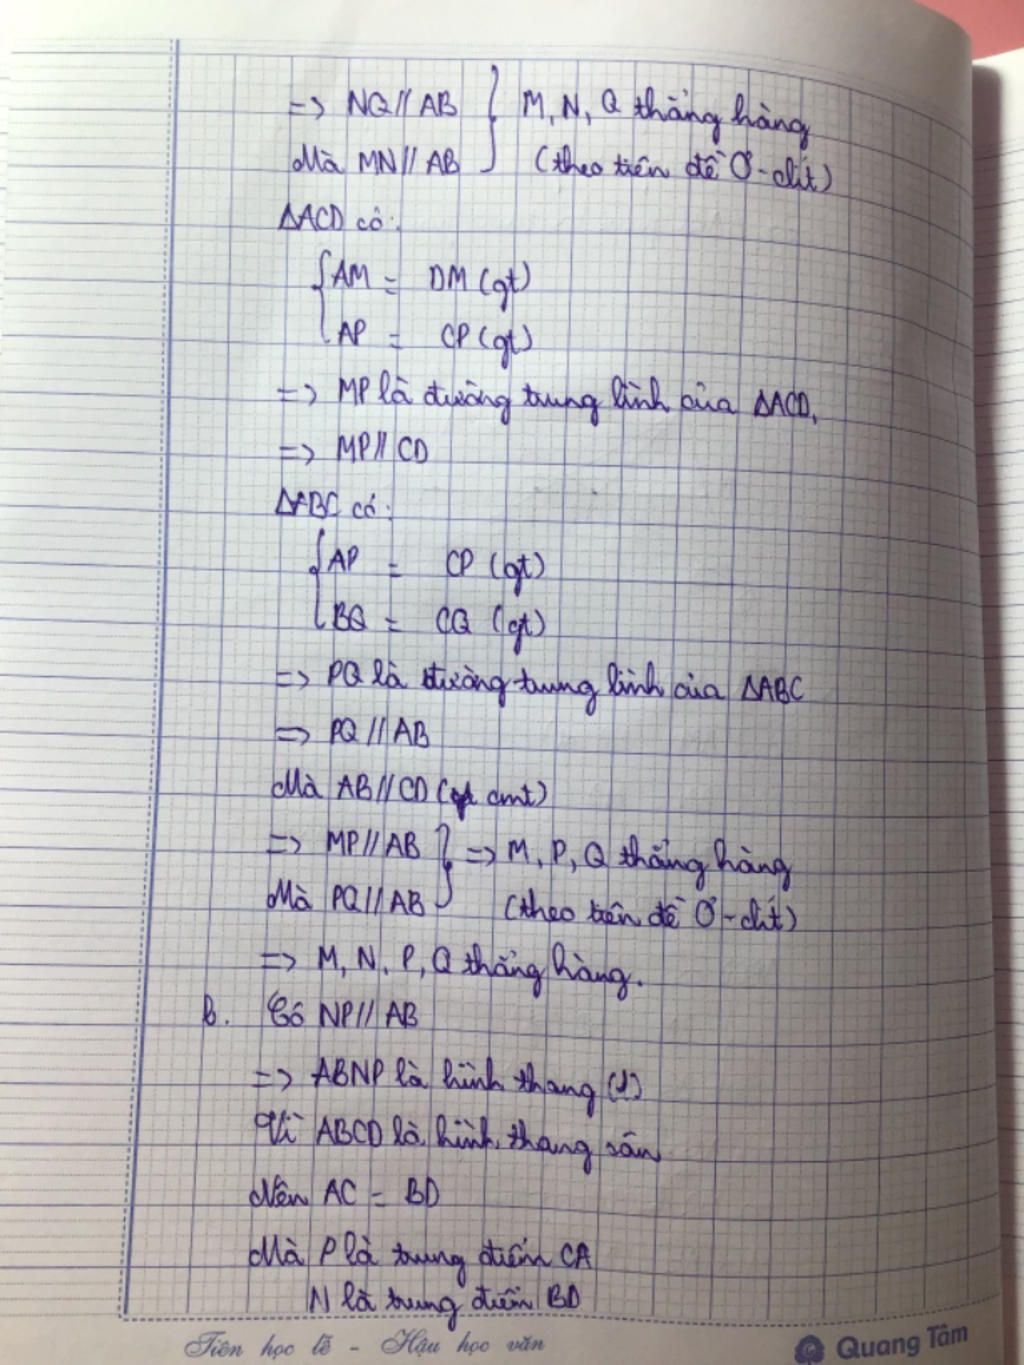 => NQ // AB } M, N, Q thẳng hàng
Mà MN // AB } (theo tiên đề Ơ-clít)
ΔACD có:
{ AM = DM (gt)
{ AP = CP (gt)
=> MP là đường trung bình của ΔACD,
=> MP // CD
ΔABC có:
{ AP = CP (gt)
{ BQ = CQ (gt)
=> PQ là đường trung bình của ΔABC
=> PQ // AB
Mà AB // CD ( cmt)
=> MP // AB } => M, P, Q thẳng hàng
Mà PQ // AB } (theo tiên đề Ơ-clít)
=> M, N, P, Q thẳng hàng.
b. Có NP // AB
=> ABNP là hình thang (1)
Vì ABCD là hình thang cân
Nên AC = BD
Mà P là trung điểm CA
N là trung điểm BD
Tiên học lễ - Hậu học văn
Quang Tâm